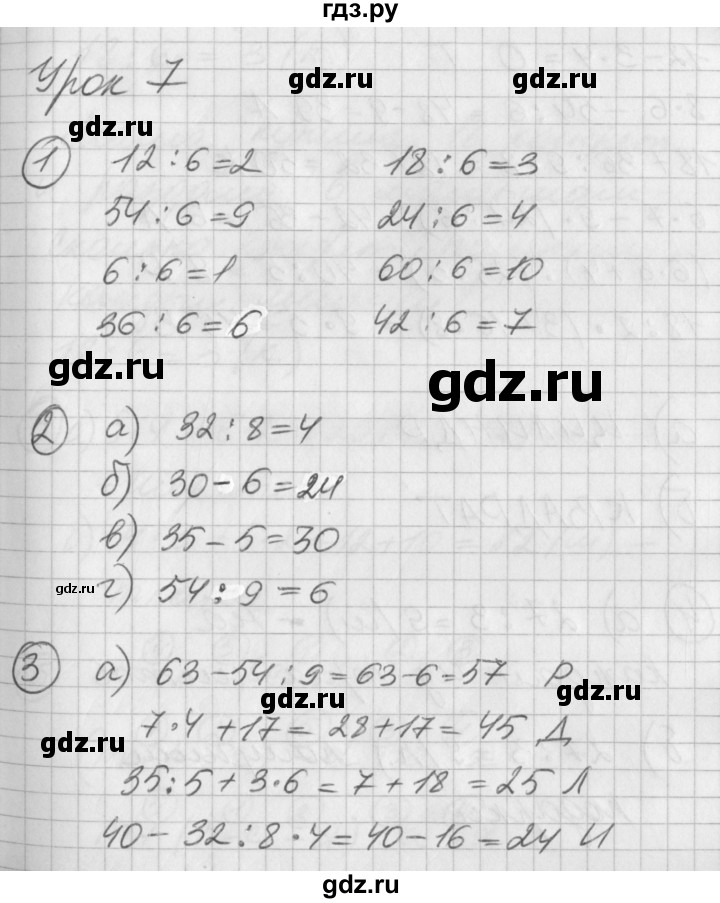 гдз.ру
Урок 7
gdz.ru
gdz.ru
gdz.ru
① 12 : 6 = 2 18 : 6 = 3
54 : 6 = 9 24 : 6 = 4
6 : 6 = 1 60 : 6 = 10
36 : 6 = 6 42 : 6 = 7
gdz.ru
gdz.ru
② а) 32 : 8 = 4
б) 30 - 6 = 24
в) 35 - 5 = 30
gdz.ru
г) 54 : 9 = 6
③ а) 63 - 54 : 9 = 63 - 6 = 57 Р
gdz.ru
gdz.ru
7 · 4 + 17 = 28 + 17 = 45 Д
gdz.ru
35 : 5 + 3 · 6 = 7 + 18 = 25 Л
40 - 32 : 8 · 4 = 40 - 16 = 24 И
gdz.ru